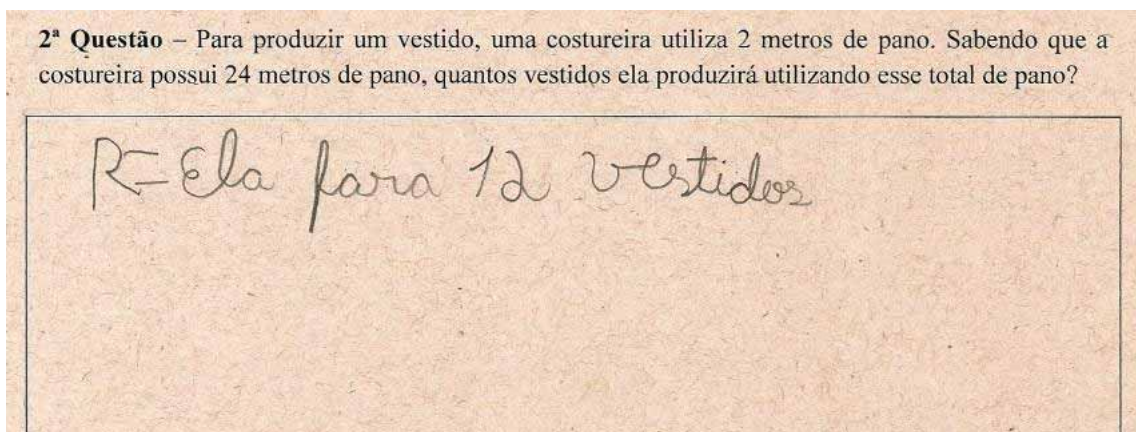 2ª Questão – Para produzir um vestido, uma costureira utiliza 2 metros de pano. Sabendo que a
costureira possui 24 metros de pano, quantos vestidos ela produzirá utilizando esse total de pano?
R= Ela fara 12 vestidos